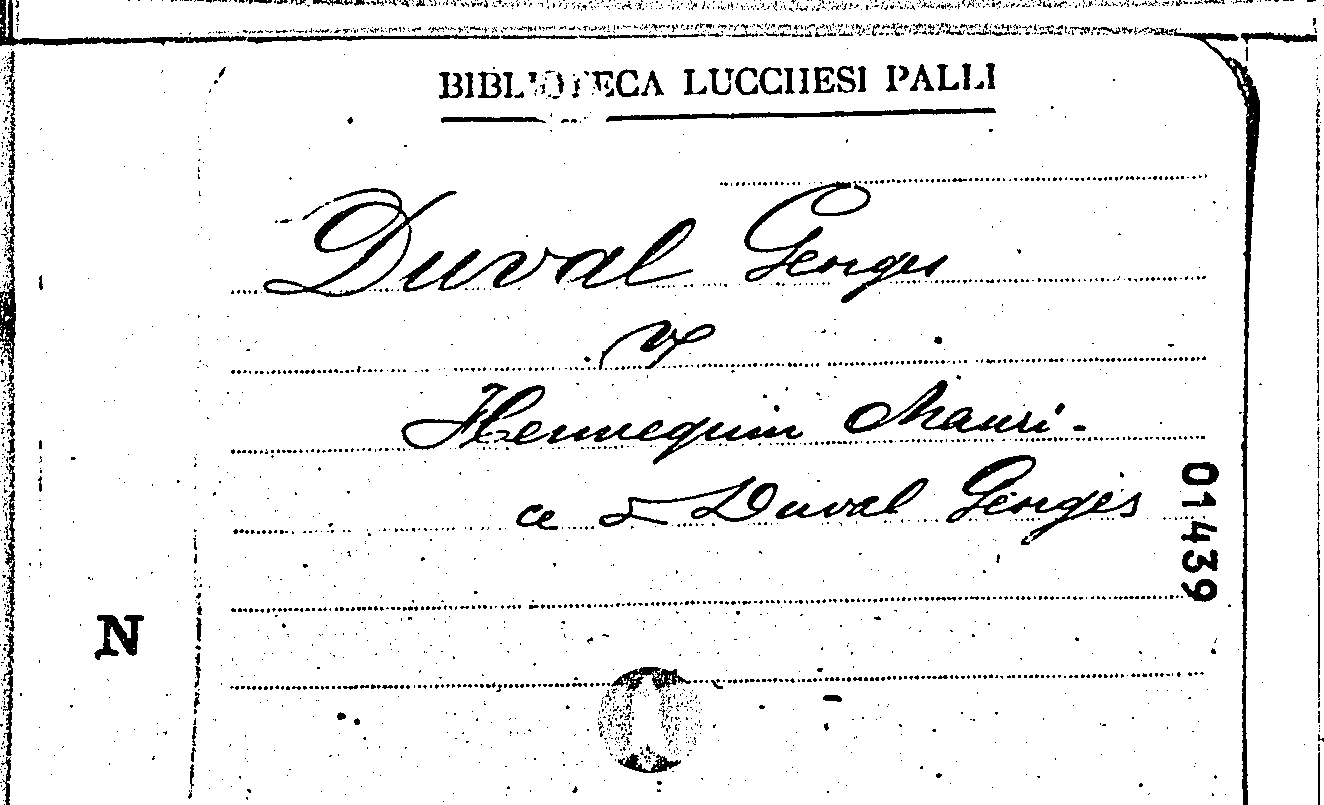 BIBLIOTECA LUCCHESI PALLI
Duval Georges
V
Hennequin Mauri-
ce & Duval Georges
01439
N